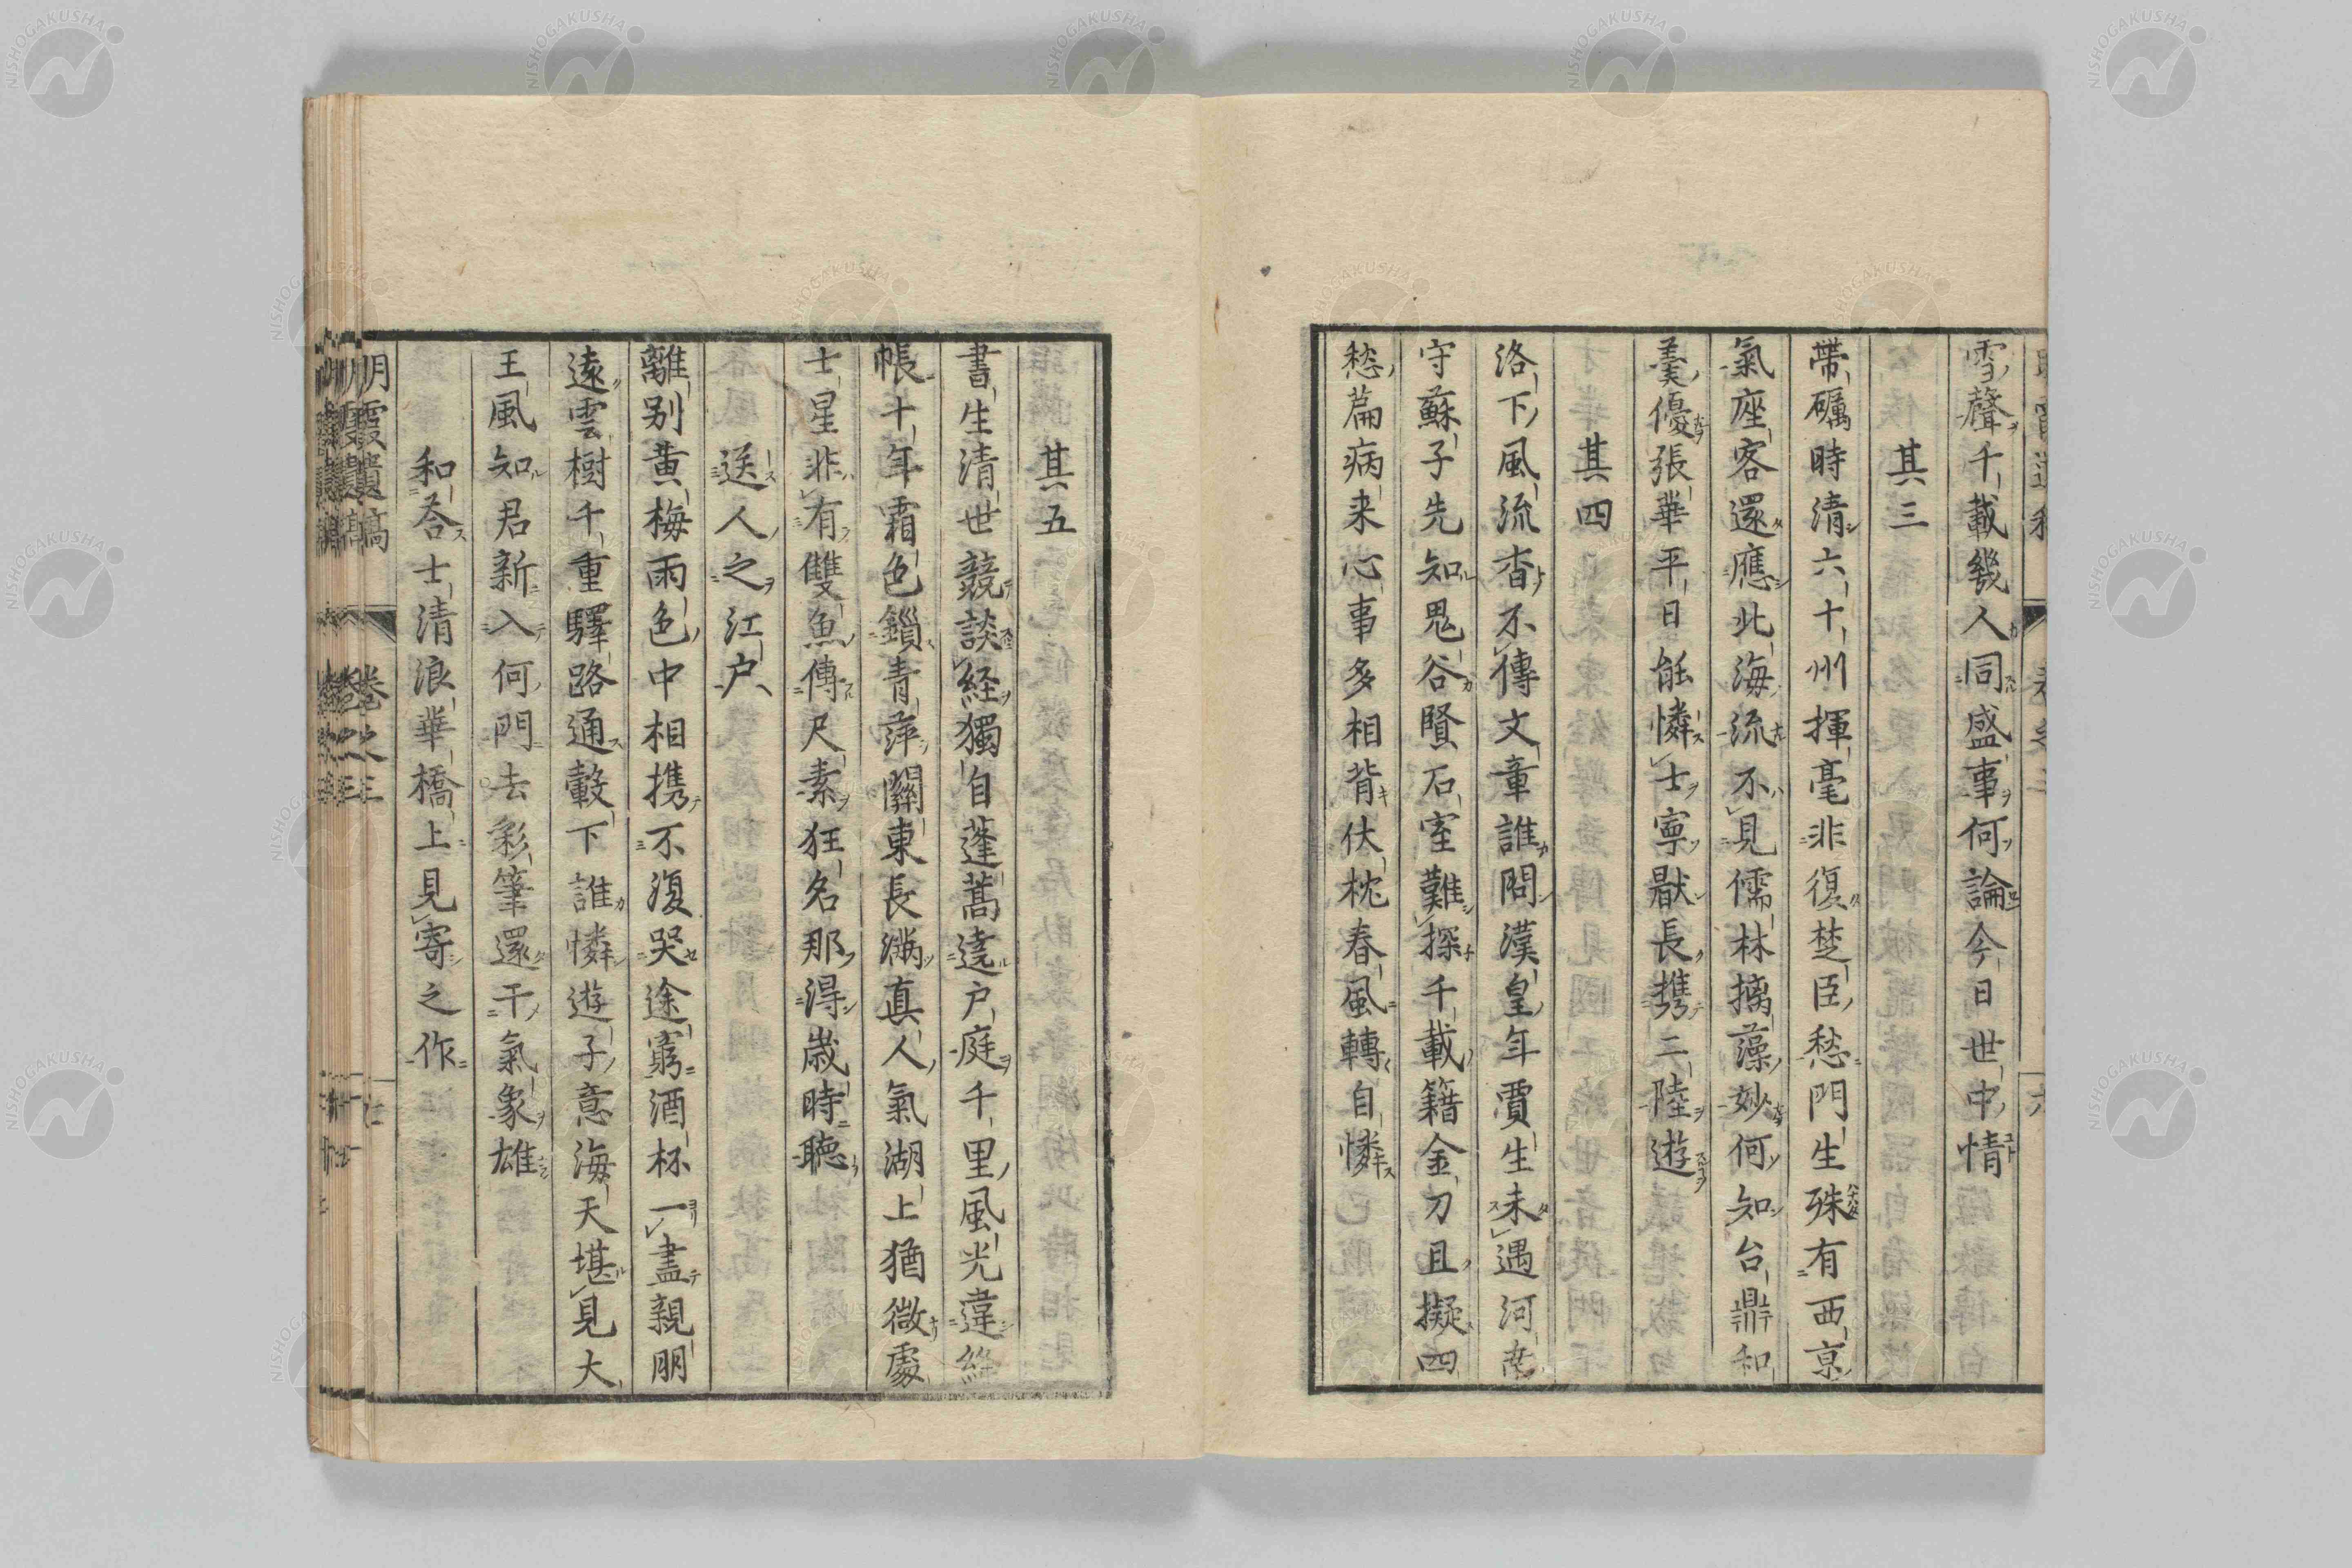 雪聲千載幾人同盛事何論今日世中情
其三
帶礪時清六十州揮毫非復楚臣愁門生殊有西京
氣座客還應北海流不見儒林摛藻妙何知台鼎和
羹優張華平日能憐士寧厭長携二陸遊
其四
洛下風流杳不傳文章誰問漢皇年賈生未遇河南
守蘇子先知鬼谷賢石室難探千載籍金刀且擬四
愁篇病来心事多相背伏枕春風轉自憐
其五
書生清世競談経獨自蓬蒿遶户庭千里風光違絳
帳十年霜色鎖青萍關東長滿真人氣湖上猶微處
士星非有雙魚傳尺素狂名那得歳時聴
送人之江户
離別黄梅雨色中相携不復哭途窮酒杯一盡親朋
遠雲樹千重驛路通轂下誰憐遊子意海天堪見大
王風知君新入何門去彩筆還干氣象雄
和荅士清浪華橋上見寄之作
明霞遺稿
卷之三
NISHOGAKUSHA